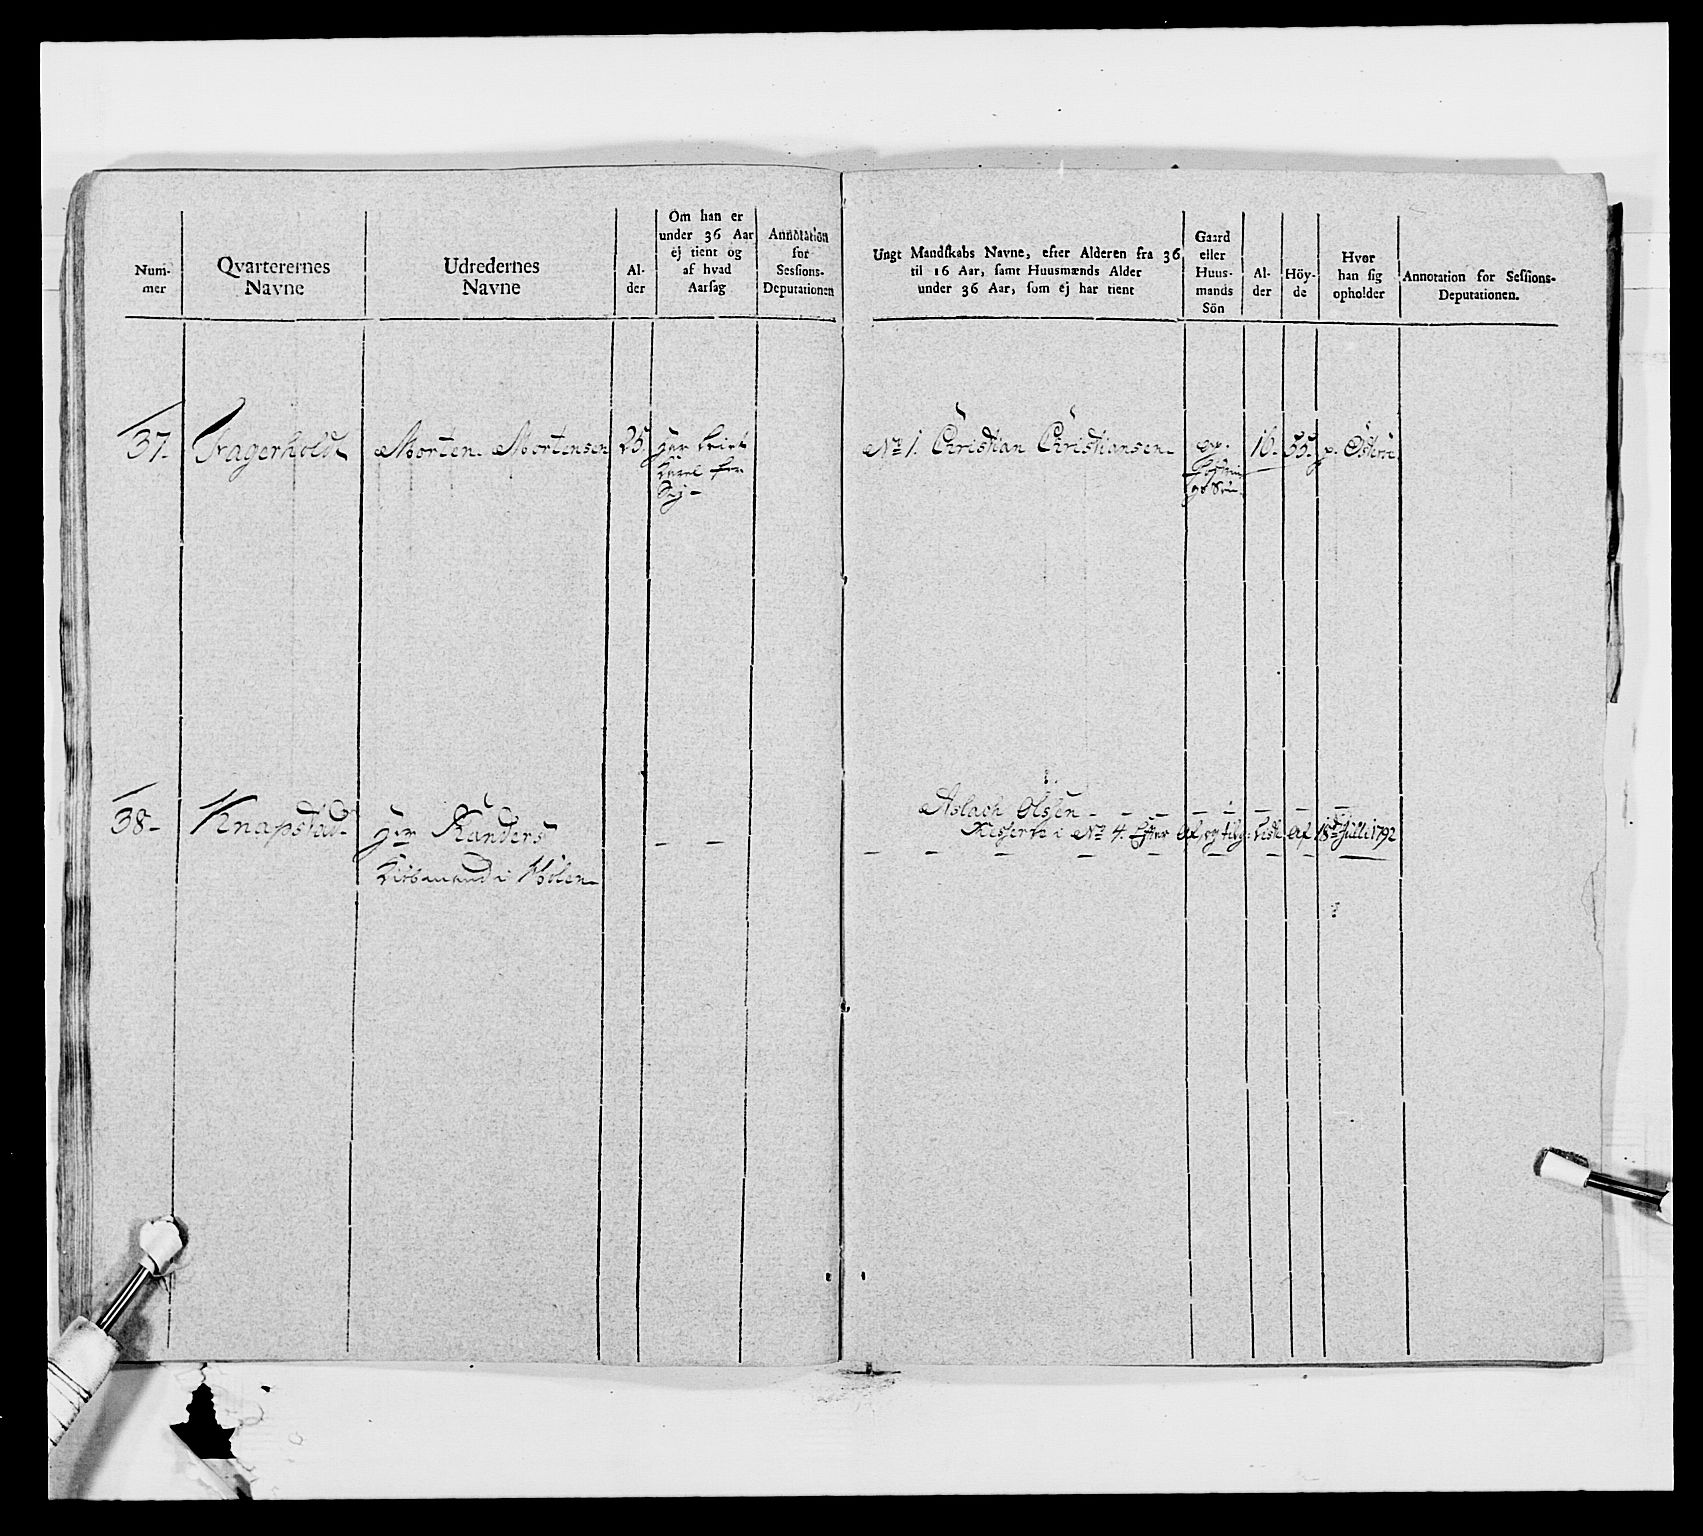 Num-
mer
Qvarterernes
Navne
Udredernes
Navne
Al-
der
Om han er
under 36 Aar
ej tient og
af hvad
Aarsag
Annotation
for
Sessions-
Deputationen
Ungt Mandskabs Navne, efter Alderen fra 36
til 16 Aar, samt Huusmænds Alder
under 36 Aar, som ej har tient
Gaard
eller
Huus-
mands
Sön
Al-
der
Höy-
de
Hvor
han sig
opholder
Annotation for Sessions-
Deputationen.
37.
Fragerholdt
Morten Mortensen
25.
Har
for
Sig-
No 1. Christian Christiansen.
16.
55.
38-
Knapstad.
Hr Randers
Kiöbmand i Hölen
Aslach Olsen - - - - - - - -
i No 4. Efter 18de Julii 1792